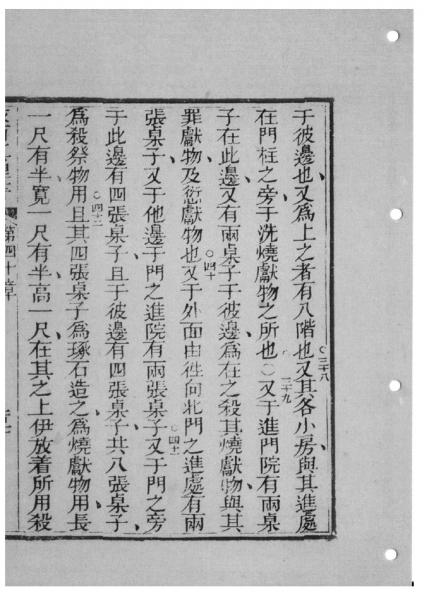 于彼邊也又爲上之者有八階也○三十八又其各小房與其進處
在門柱之旁于洗燒獻物之所也○三十九又于進門院有兩桌
子在此邊又有兩桌子于彼邊爲在之殺其燒獻物與其
罪獻物及愆獻物也○四十又于外面由徃向北門之進處有兩
張桌子又于他邊于門之進院有兩張桌子○四十一又于門之旁
于此邊有四張桌子且于彼邊有四張桌子共八張桌子
爲殺祭物用○四十二且其四張桌子爲琢石造之爲燒獻物用長
一尺有半寬一尺有半高一尺在其之上伊放着所用殺
第四十章